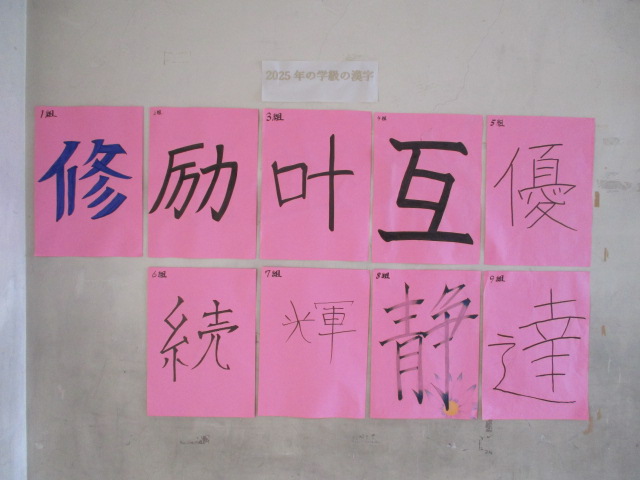 2025年の学級の漢字
1組
修
2組
励
3組
叶
4組
互
5組
優
6組
続
7組
輝
8組
静
9組
達